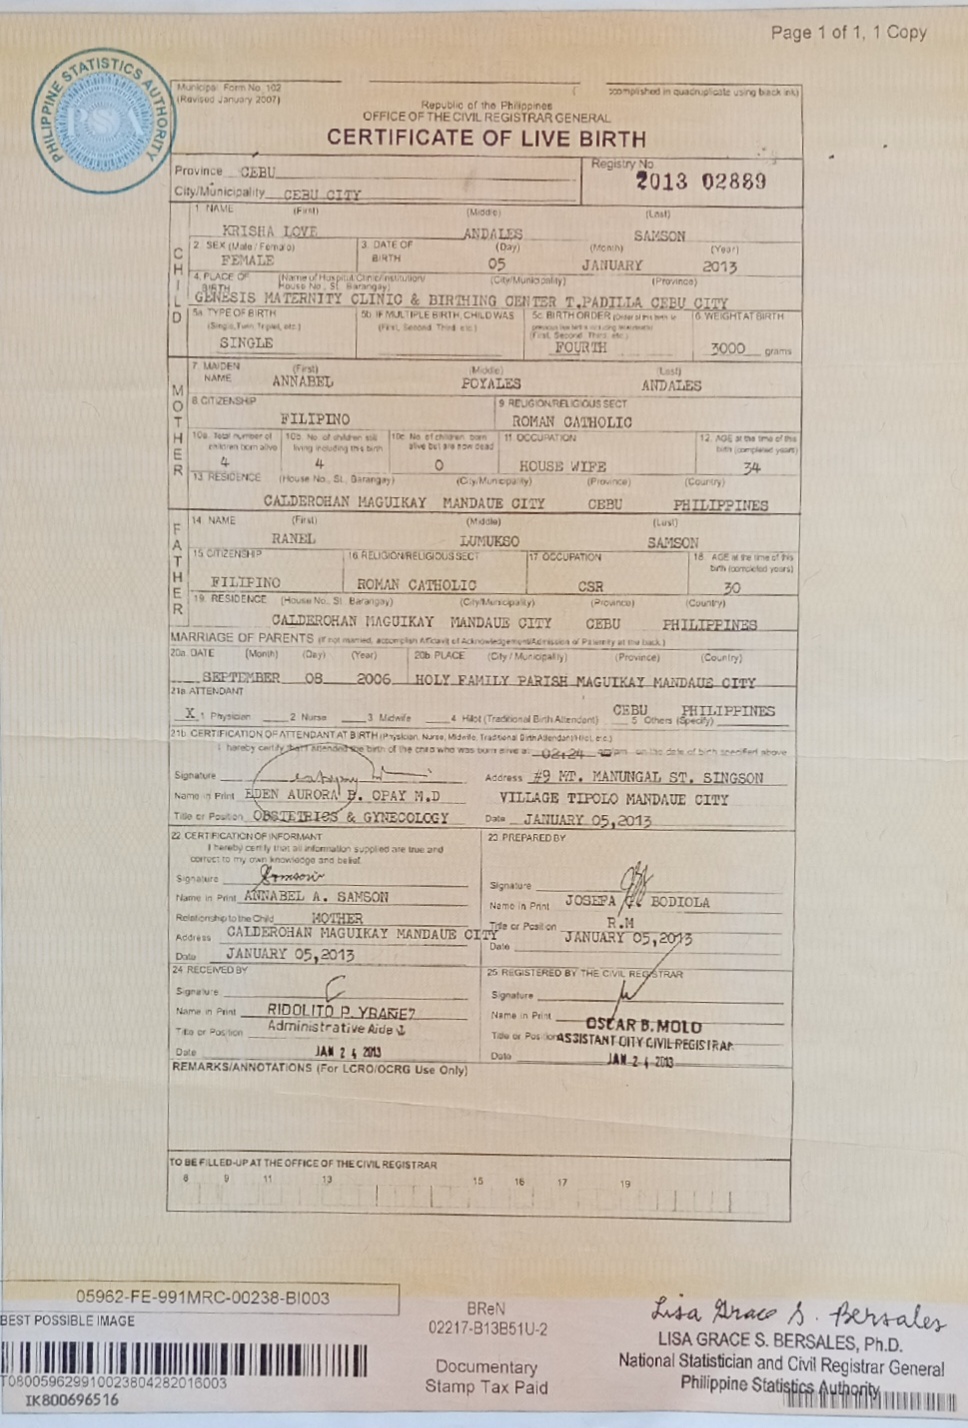 Page 1 of 1, 1 Copy
PHILIPPINE STATISTICS AUTHORITY
PSA
Municipal Form No. 102
(Revised January 2007)
accomplished in quadruplicate using black ink)
Republic of the Philippines
OFFICE OF THE CIVIL REGISTRAR GENERAL
CERTIFICATE OF LIVE BIRTH
Province CEBU
Registry No
2013 02889
City/Municipality CEBU CITY
CHILD
1 NAME (First) (Middle) (Last)
KRISHA LOVE ANDALES SAMSON
2. SEX (Male / Female) 3. DATE OF BIRTH (Day) (Month) (Year)
FEMALE 05 JANUARY 2013
4. PLACE OF BIRTH (Name of Hospital/Clinic/Institution/ House No., St. Barangay) (City/Municipality) (Province)
GENESIS MATERNITY CLINIC & BIRTHING CENTER T.PADILLA CEBU CITY
5a TYPE OF BIRTH 5b IF MULTIPLE BIRTH, CHILD WAS 5c BIRTH ORDER 6 WEIGHT AT BIRTH
(Single, Twin, Triplet, etc.) (First, Second, Third etc.) (First, Second, Third, etc.)
SINGLE FOURTH 3000 grams
MOTHER
7. MAIDEN NAME (First) (Middle) (Last)
ANNABEL POYALES ANDALES
8 CITIZENSHIP 9 RELIGION/RELIGIOUS SECT
FILIPINO ROMAN CATHOLIC
10a. Total number of children born alive 10b. No. of children still living including this birth 10c No. of children born alive but are now dead 11 OCCUPATION 12. AGE at the time of this birth (completed years)
4 4 0 HOUSE WIFE 34
13. RESIDENCE (House No., St., Barangay) (City/Municipality) (Province) (Country)
CALDEROHAN MAGUIKAY MANDAUE CITY CEBU PHILIPPINES
FATHER
14. NAME (First) (Middle) (Last)
RANEL LUMUKSO SAMSON
15 CITIZENSHIP 16 RELIGION/RELIGIOUS SECT 17 OCCUPATION 18. AGE at the time of this birth (completed years)
FILIPINO ROMAN CATHOLIC CSR 30
19. RESIDENCE (House No., St. Barangay) (City/Municipality) (Province) (Country)
CALDEROHAN MAGUIKAY MANDAUE CITY CEBU PHILIPPINES
MARRIAGE OF PARENTS (If not married, accomplish Affidavit of Acknowledgement/Admission of Paternity at the back.)
20a. DATE (Month) (Day) (Year) 20b PLACE (City / Municipality) (Province) (Country)
SEPTEMBER 08 2006 HOLY FAMILY PARISH MAGUIKAY MANDAUE CITY
21a ATTENDANT
CEBU PHILIPPINES
X 1 Physician 2 Nurse 3 Midwife 4 Hilot (Traditional Birth Attendant) 5 Others (Specify)
21b. CERTIFICATION OF ATTENDANT AT BIRTH (Physician, Nurse, Midwife, Traditional Birth Attendant/Hilot, etc.)
I hereby certify that I attended the birth of the child who was born alive at 02:24 am/pm on the date of birth specified above
Signature Address #9 MT. MANUNGAL ST. SINGSON
Name in Print EDEN AURORA B. OPAY M.D VILLAGE TIPOLO MANDAUE CITY
Title or Position OBSTETRICS & GYNECOLOGY Date JANUARY 05,2013
22 CERTIFICATION OF INFORMANT
I hereby certify that all information supplied are true and
correct to my own knowledge and belief.
Signature Samson
Name in Print ANNABEL A. SAMSON
Relationship to the Child MOTHER
Address CALDEROHAN MAGUIKAY MANDAUE CITY
Date JANUARY 05,2013
23 PREPARED BY
Signature
Name in Print JOSEPA BODIOLA
Title or Position R.M
Date JANUARY 05,2013
24 RECEIVED BY
Signature
Name in Print RIDOLITO P. YBAÑEZ
Title or Position Administrative Aide I
Date JAN 24 2013
25 REGISTERED BY THE CIVIL REGISTRAR
Signature
Name in Print OSCAR B. MOLO
Title or Position ASSISTANT CITY CIVIL REGISTRAR
Date JAN 24 2013
REMARKS/ANNOTATIONS (For LCRO/OCRG Use Only)
TO BE FILLED-UP AT THE OFFICE OF THE CIVIL REGISTRAR
8 9 11 13 15 16 17 19
05962-FE-991MRC-00238-BI003
BEST POSSIBLE IMAGE
T080059629910023804282016003
IK800696516
BReN
02217-B13B51U-2
Documentary
Stamp Tax Paid
Lisa Grace S. Bersales
LISA GRACE S. BERSALES, Ph.D.
National Statistician and Civil Registrar General
Philippine Statistics Authority